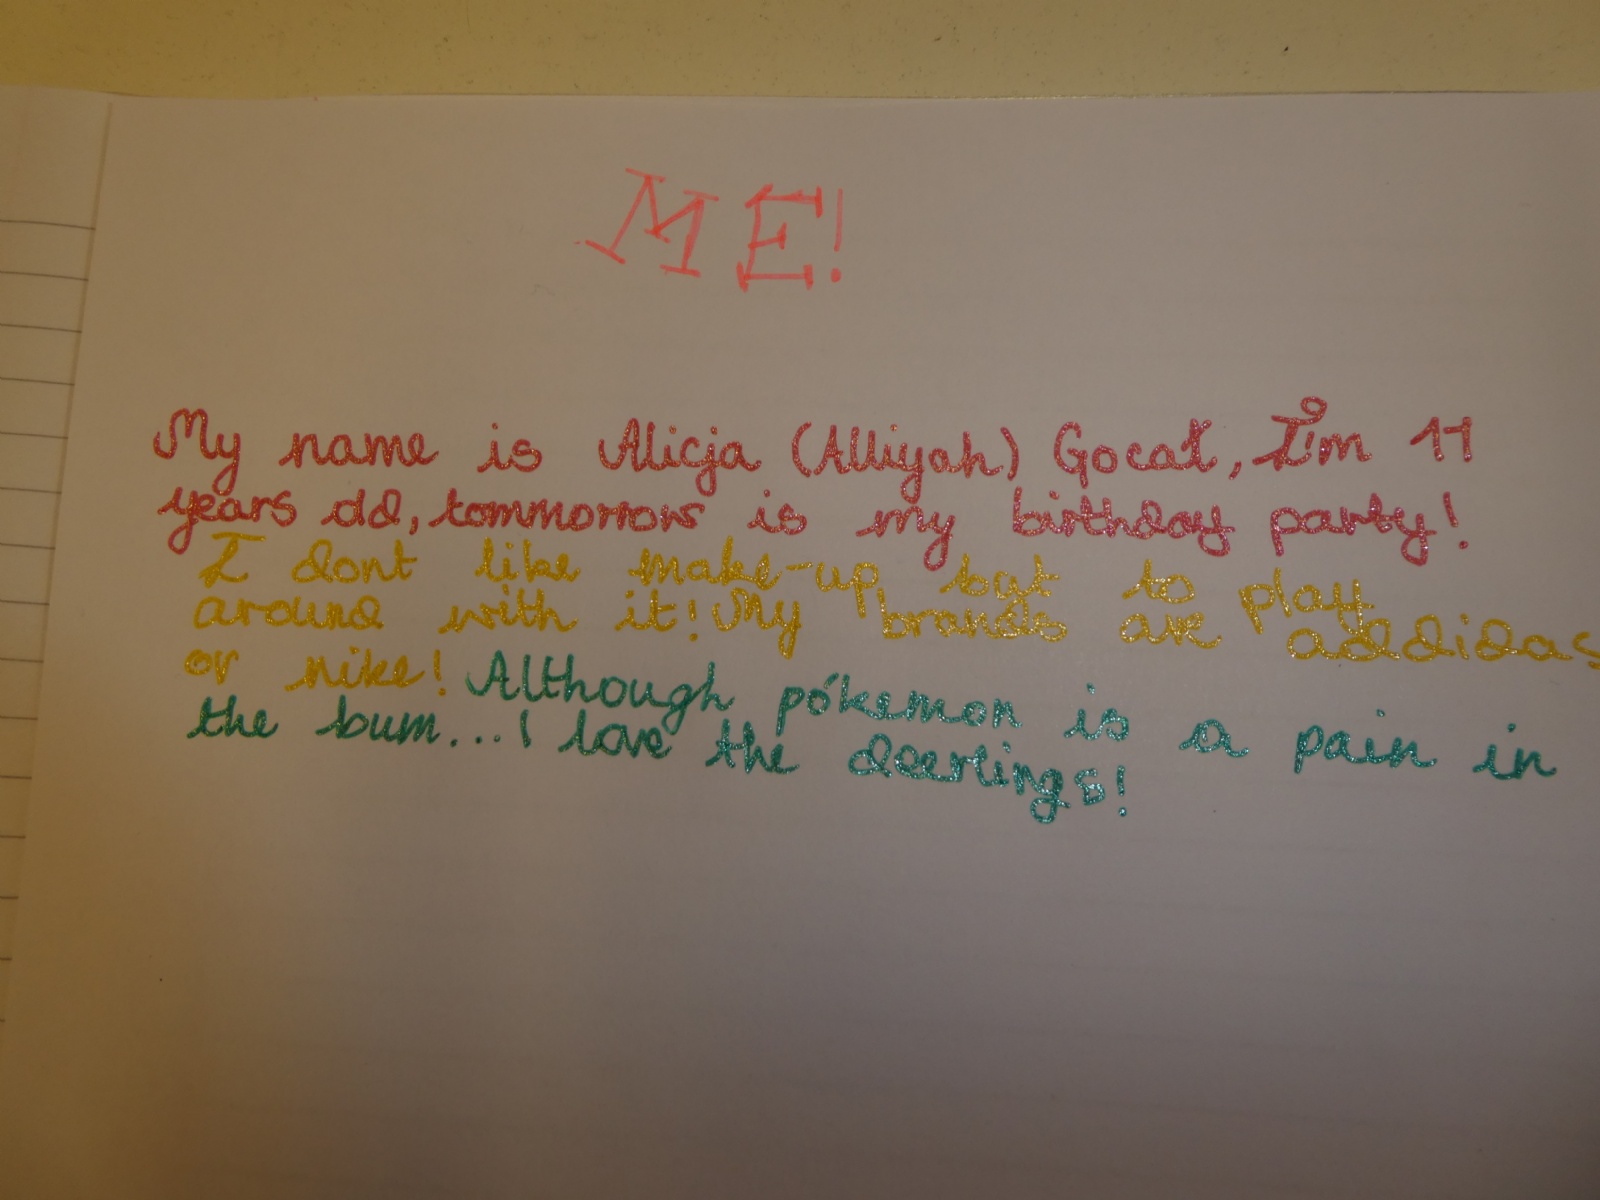 ME!
My name is Alicja (Alliyah) Gocał, I'm 11
years old, tommorrow is my birthday party!
I dont like make-up but to play
around with it! My brands are addidas
or nike! Although pókemon is a pain in
the bum...I love the deerlings!